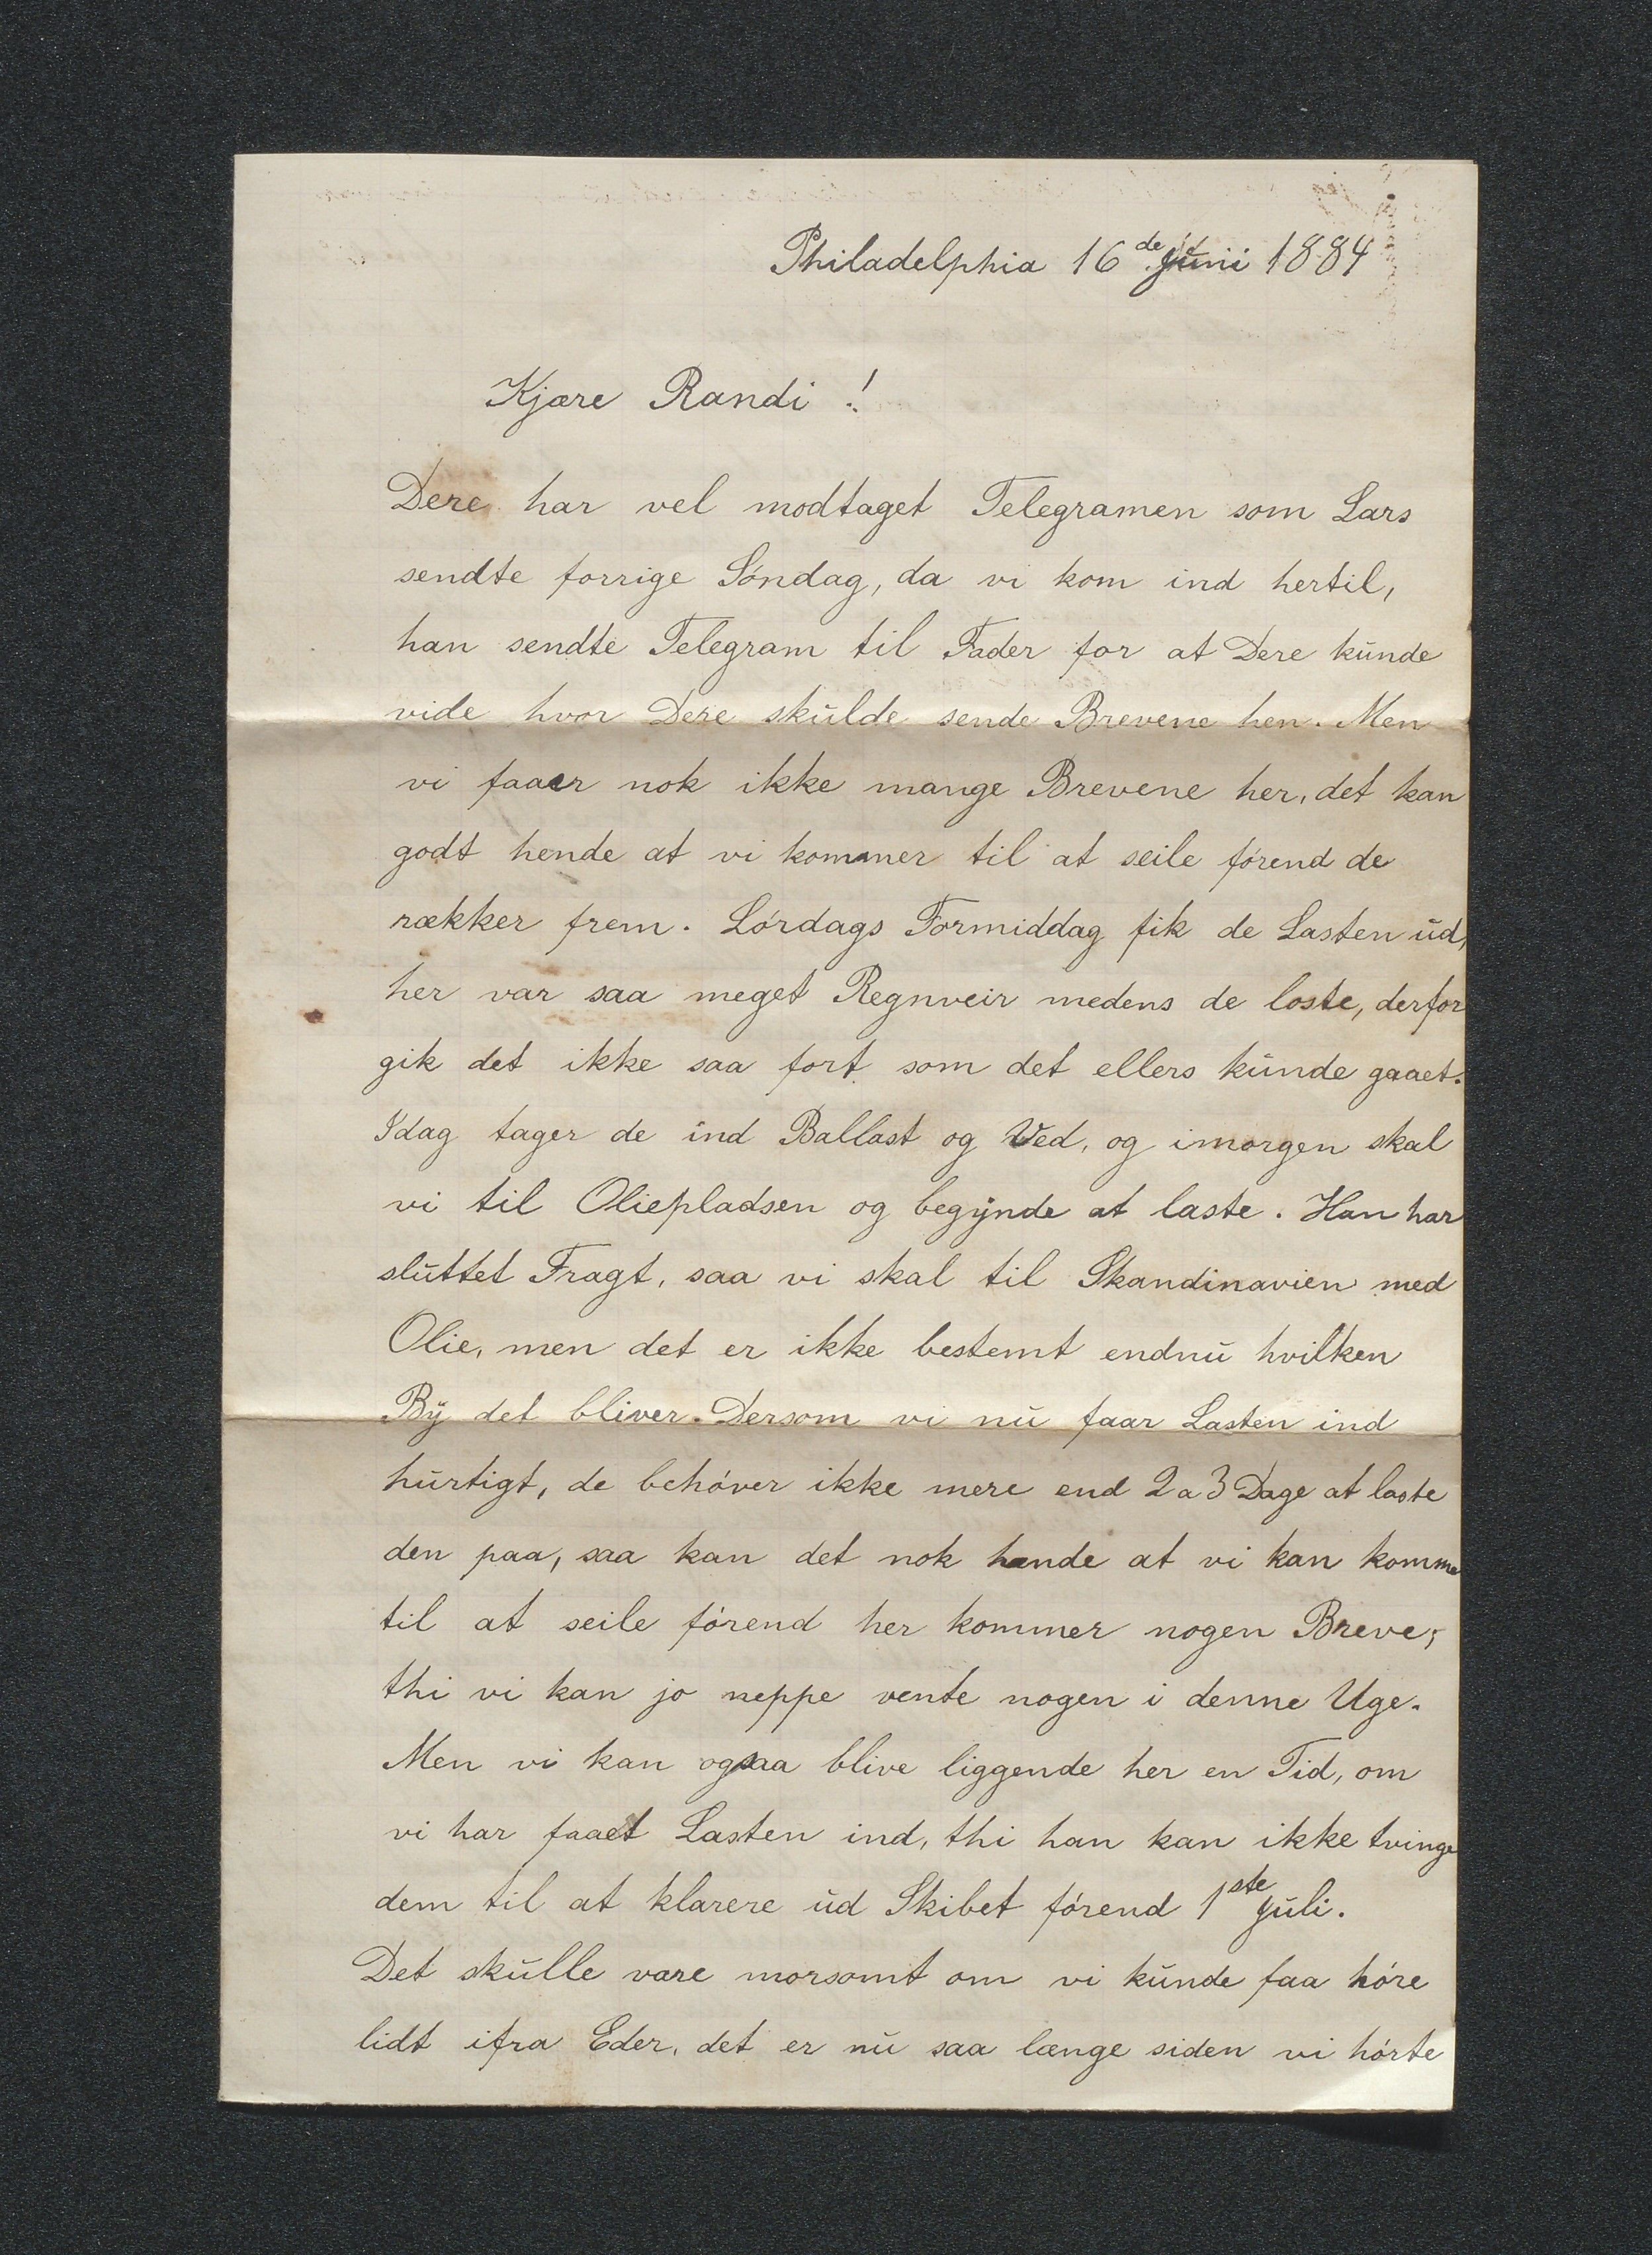 Philadelphia 16de Juni 1884
Kjære Randi!
Dere har vel modtaget Telegramen som Lars
sendte forrige Söndag, da vi kom ind hertil,
han sendte Telegram til Fader for at Dere kunde
vide hvor Dere skulde sende Brevene hen. Men
vi faaer nok ikke mange Brevene her, det kan
godt hende at vi kommer til at seile förend de
rækker frem. Lördags Formiddag fik de Lasten ud,
her var saa meget Regnveir medens de loste, derfor
gik det ikke saa fort som det ellers kunde gaaet.
Idag tager de ind Ballast og Ved, og imorgen skal
vi til Oliepladsen og begynde at laste. Han har
sluttet Fragt, saa vi skal til Skandinavien med
Olie, men det er ikke bestemt endnu hvilken
By det bliver. Dersom vi nu faar Lasten ind
hurtigt, de behöver ikke mere end 2 a 3 Dage at laste
den paa, saa kan det nok hænde at vi kan komme
til at seile förend her kommer nogen Breve,
thi vi kan jo neppe vente nogen i denne Uge.
Men vi kan ogsaa blive liggende her en Tid, om
vi har faaet Lasten ind, thi han kan ikke tvinge
dem til at klarere ud Skibet förend 1ste Juli.
Det skulle være morsomt om vi kunde faa höre
lidt ifra Eder, det er nu saa længe siden vi hörte